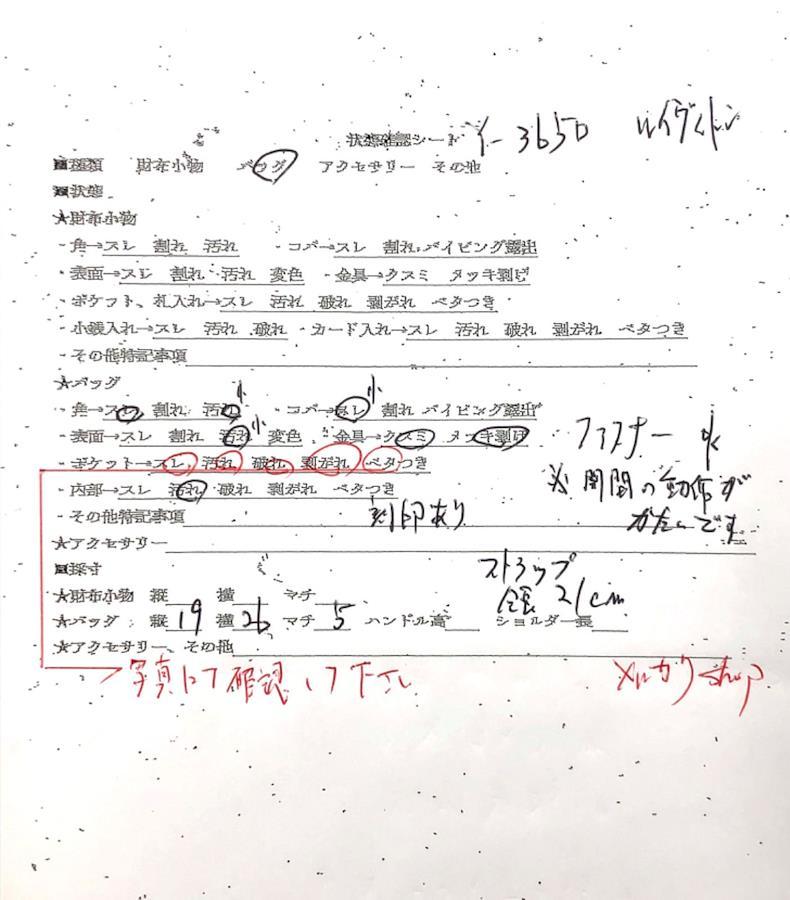 状態確認シート イ-3650 ルイヴィトン
■種類 財布小物 バッグ アクセサリー その他
■状態
★財布小物
・角→スレ 割れ 汚れ ・コバ→スレ 割れ パイピング露出
・表面→スレ 割れ 汚れ 変色 ・金具→クスミ メッキ剥げ
・ポケット、札入れ→スレ 汚れ 破れ 剥がれ ベタつき
・小銭入れ→スレ 汚れ 破れ ・カード入れ→スレ 汚れ 破れ 剥がれ ベタつき
・その他特記事項
★バッグ 小 小
・角→スレ 割れ 汚れ ・コバ→スレ 割れ パイピング露出
・表面→スレ 割れ 汚れ 小 変色 ・金具→クスミ メッキ剥げ ファスナー
・ポケット→スレ 汚れ 破れ 剥がれ ベタつき
・内部→スレ 汚れ 破れ 剥がれ ベタつき ※開閉の動作が
・その他特記事項 刻印あり かたいです
★アクセサリー
■採寸 ストラップ
★財布小物 縦 横 マチ 全長 21cm
★バッグ 縦 19 横 26 マチ 5 ハンドル高 ショルダー長
★アクセサリー、その他
写真にて確認して下さい メルカリshop